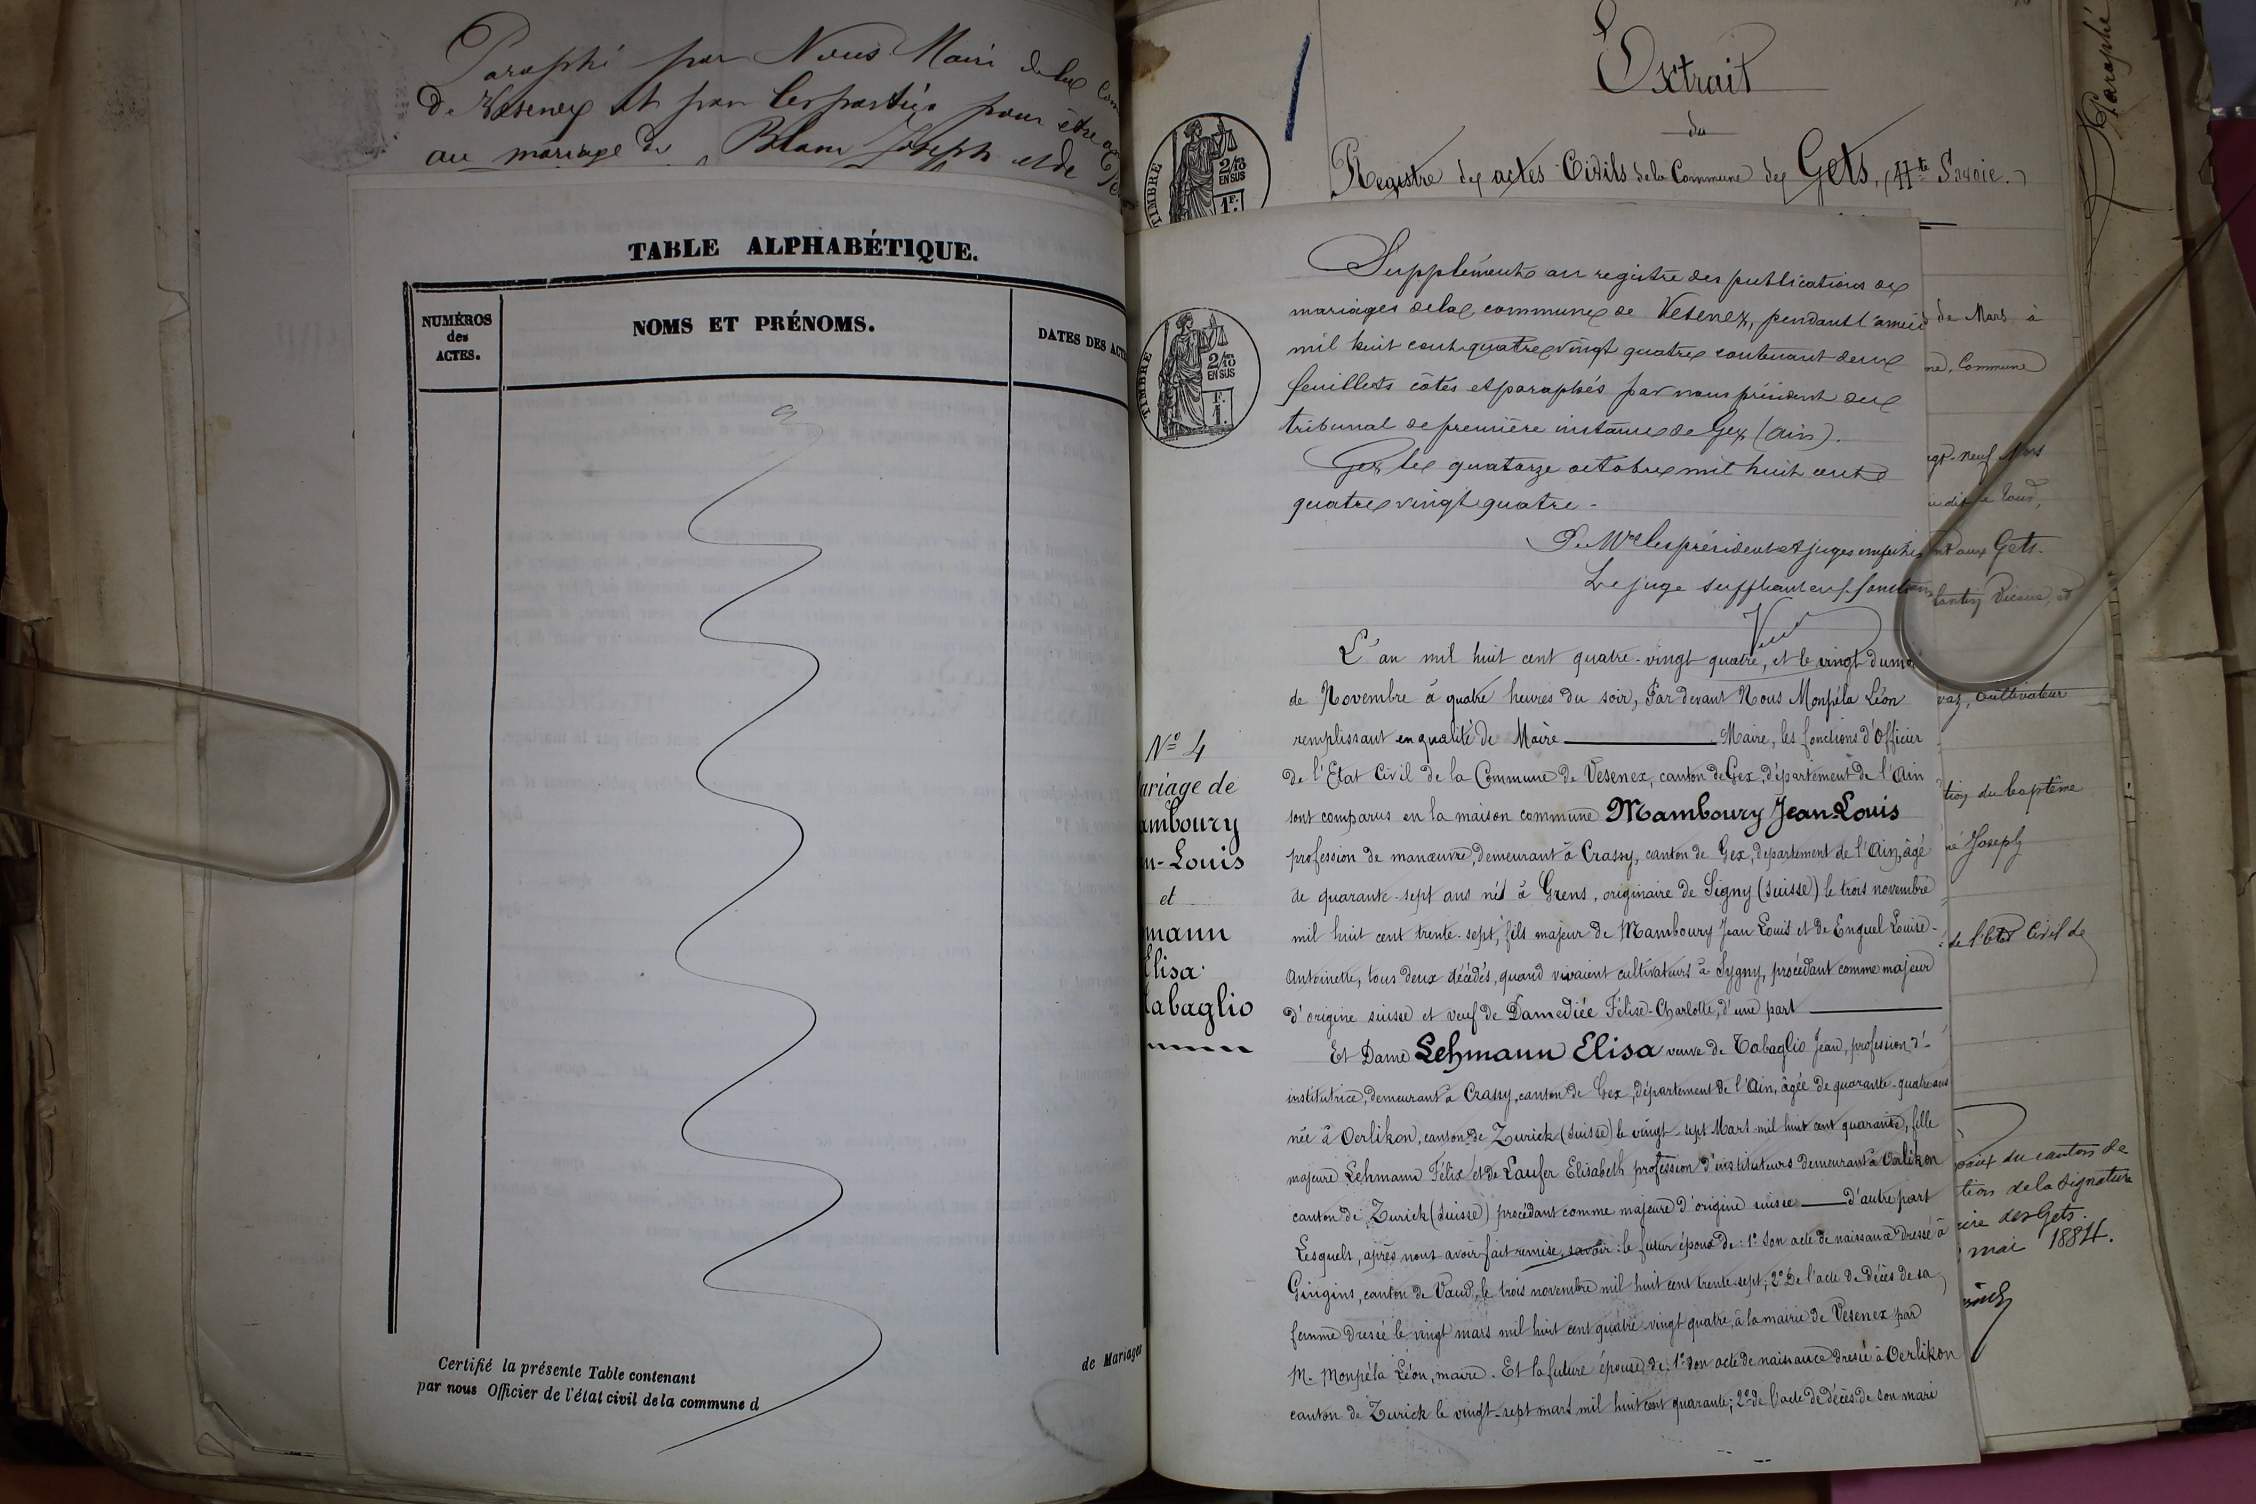 Paraphé par Nous Maire de la Com
de Vesenex et par les parties pour être
au mariage de Blanc Joseph et de
TABLE ALPHABÉTIQUE.
NUMÉROS
des
ACTES.
NOMS ET PRÉNOMS.
DATES DES ACT
Certifié la présente Table contenant
de Mariages
par nous Officier de l'état civil de la commune d
Extrait
du
Registre des actes Civils de la Commune des Gets, (Hte Savoie.)
TIMBRE
2/10
EN SUS
1F.
Supplément au registre des publications de
mariages de la commune de Vesenex, pendant l'année
mil huit cent quatre vingt quatre contenant deux
feuillets côtés et paraphés par nous président du
tribunal de première instance de Gex (Ain).
Gex le quatorze octobre mil huit cent
quatre vingt quatre.
P. Mrs les président et juges empêchés
Le juge suppléant
TIMBRE
2/10
EN SUS
1F.
L'an mil huit cent quatre-vingt quatre, et le vingt du moi
de Novembre à quatre heures du soir, Par devant Nous Monpéla Léon
remplissant en qualité de Maire Maire, les fonctions d'Officier
de l'Etat Civil de la Commune de Vesenex, canton de Gex, département de l'Ain
sont comparus en la maison commune Mamboury Jean-Louis
profession de manœuvre, demeurant à Crassy, canton de Gex, département de l'Ain, âgé
de quarante-sept ans né à Grens, originaire de Signy (Suisse) le trois novembre
mil huit cent trente-sept, fils majeur de Mamboury Jean Louis et de Enguel Louise-
Antoinette, tous deux décédés, quand vivaient cultivateurs à Sygny, procédant comme majeur
d'origine suisse et veuf de Damediée Félise-Charlotte, d'une part
Et Dame Lehmann Elisa veuve de Tabaglio Jean, profession d'-
institutrice, demeurant à Crassy, canton de Gex, département de l'Ain, âgée de quarante-quatre ans
née à Oerlikon, canton de Zurick (Suisse) le vingt-sept Mars mil huit cent quarante, fille
majeure Lehmann Félix et de Laufer Elisabeth profession d'instituteurs demeurant à Oerlikon
canton de Zurick (Suisse) procédant comme majeure d'origine suisse d'autre part
Lesquels, après nous avoir fait remise, savoir: le futur époux de: 1° Son acte de naissance dressé à
Gingins, canton de Vaud, le trois novembre mil huit cent trente-sept; 2° De l'acte de décès de sa
femme dressé le vingt mars mil huit cent quatre vingt quatre, à la mairie de Vesenex par
M. Monpéla Léon, maire. Et la future épouse de: 1° Son acte de naissance dressé à Oerlikon
canton de Zurick le vingt-sept mars mil huit cent quarante; 2° de l'acte de décès de son mari
N° 4
ariage de
amboury
n-Louis
et
mann
Elisa
tabaglio
de Mars à
ne, Commune
gt-neuf Mars
nt aux Gets.
vaz, Cultivateur
tion du baptême
né Joseph
de l'Etat Civil de
paix du canton de
tion de la signature
ire des Gets.
mai 1884.
Paraphé